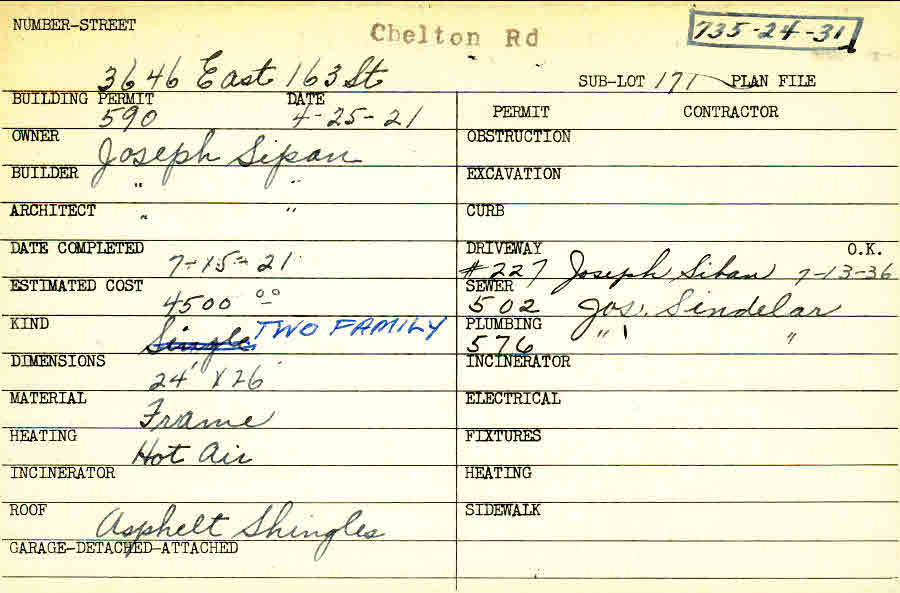 NUMBER-STREET
Chelton Rd
735-24-31
3646 East 163 St
SUB-LOT 171 PLAN FILE
BUILDING PERMIT DATE
590 4-25-21
PERMIT CONTRACTOR
OWNER Joseph Sipan
BUILDER " "
ARCHITECT " "
DATE COMPLETED
7-15-21
ESTIMATED COST
4500 00
KIND
Single TWO FAMILY
DIMENSIONS
24' X 26'
MATERIAL
Frame
HEATING
Hot Air
INCINERATOR
ROOF
Asphelt Shingles
GARAGE-DETACHED-ATTACHED
OBSTRUCTION
EXCAVATION
CURB
DRIVEWAY O.K.
#227 Joseph Siban 7-13-36
SEWER
502 Jos. Sindelar
PLUMBING
576 " "
INCINERATOR
ELECTRICAL
FIXTURES
HEATING
SIDEWALK